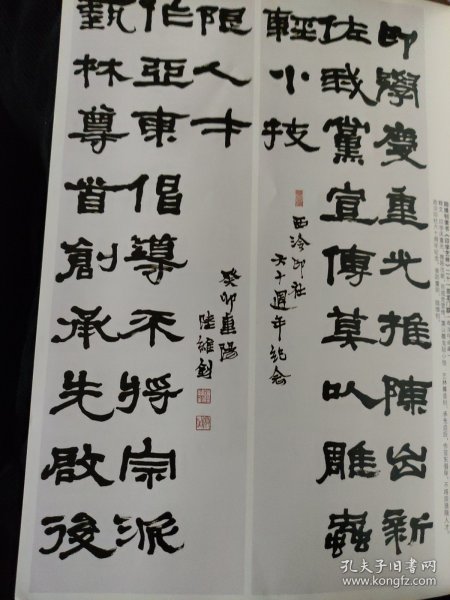 印學慶重光推陳出新
佐我黨宣傳莫以雕蟲
輕小技
西泠印社
六十週年紀念
藝林尊首創承先啟後
作亞東倡導不將宗派
限人才
癸卯重陽
陸維釗
孔夫子旧书网
www.kongfz.com